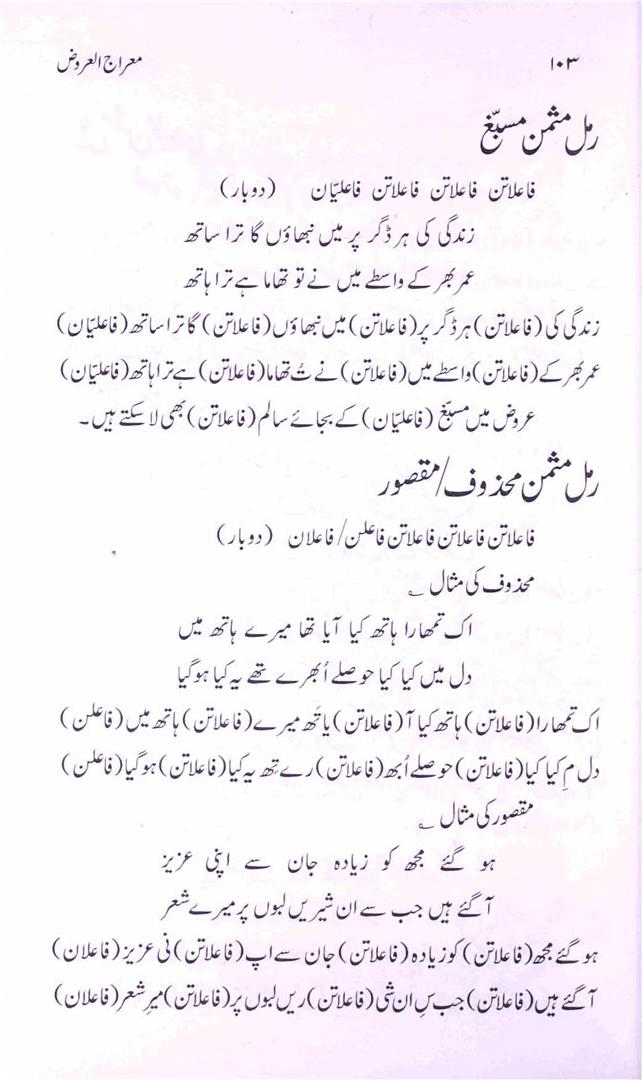 ۱۰۳ معراج العروض
رمل مثمن مسبّغ
فاعلاتن فاعلاتن فاعلاتن فاعلیّان (دوبار)
زندگی کی ہر ڈگر پر میں نبھاؤں گا ترا ساتھ
عمر بھر کے واسطے میں نے تو تھاما ہے ترا ہاتھ
زندگی کی (فاعلاتن) ہر ڈگر پر (فاعلاتن) میں نبھاؤں (فاعلاتن) گا ترا ساتھ (فاعلیّان)
عمر بھر کے (فاعلاتن) واسطے میں (فاعلاتن) نے تُ تھاما (فاعلاتن) ہے ترا ہاتھ (فاعلیّان)
عروض میں مسبّغ (فاعلیّان) کے بجائے سالم (فاعلاتن) بھی لا سکتے ہیں۔
رمل مثمن محذوف/مقصور
فاعلاتن فاعلاتن فاعلاتن فاعلن/فاعلان (دوبار)
محذوف کی مثال ؎
اک تمھارا ہاتھ کیا آیا تھا میرے ہاتھ میں
دل میں کیا کیا حوصلے اُبھرے تھے یہ کیا ہو گیا
اک تمھارا (فاعلاتن) ہاتھ کیا آ (فاعلاتن) یا تَھ میرے (فاعلاتن) ہاتھ میں (فاعلن)
دل مِ کیا کیا (فاعلاتن) حوصلے اُبھ (فاعلاتن) رے تِھ یہ کیا (فاعلاتن) ہو گیا (فاعلن)
مقصور کی مثال ؎
ہو گئے مجھ کو زیادہ جان سے اپنی عزیز
آ گئے ہیں جب سے ان شیریں لبوں پر میرے شعر
ہو گئے مجھ (فاعلاتن) کو زیادہ (فاعلاتن) جان سے اپ (فاعلاتن) نی عزیز (فاعلان)
آ گئے ہیں (فاعلاتن) جب سِ ان شی (فاعلاتن) ریں لبوں پر (فاعلاتن) میرِ شعر (فاعلان)